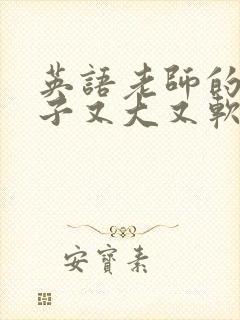 英語老師的
子又大又軟
安寶素